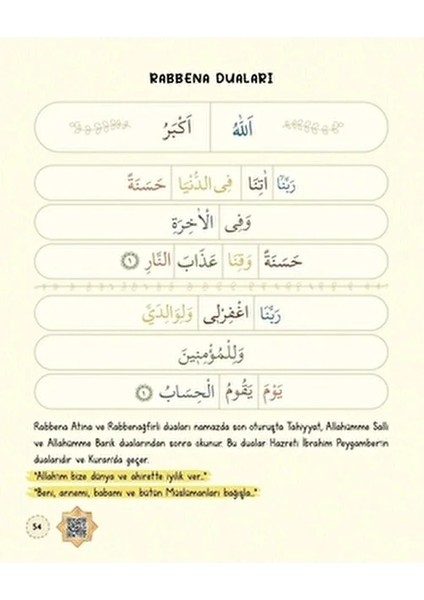 RABBENA DUALARI
اَللّٰهُ اَكْبَرُ
رَبَّنَٓا اٰتِنَا فِى الدُّنْيَا حَسَنَةً
وَفِى الْاٰخِرَةِ
حَسَنَةً وَقِنَا عَذَابَ النَّارِ ﴿١﴾
رَبَّنَا اغْفِرْلِى وَلِوَالِدَيَّ
وَلِلْمُؤْمِنِينَ
يَوْمَ يَقُومُ الْحِسَابُ ﴿١﴾
Rabbena Atina ve Rabbenağfirli duaları namazda son oturuşta Tahiyyat, Allahümme Salli
ve Allahümme Barik dualarından sonra okunur. Bu dualar Hazreti İbrahim Peygamber'in
dualarıdır ve Kuran'da geçer.
"Allah'ım bize dünya ve ahirette iyilik ver.."
"Beni, annemi, babamı ve bütün Müslümanları bağışla.."
54